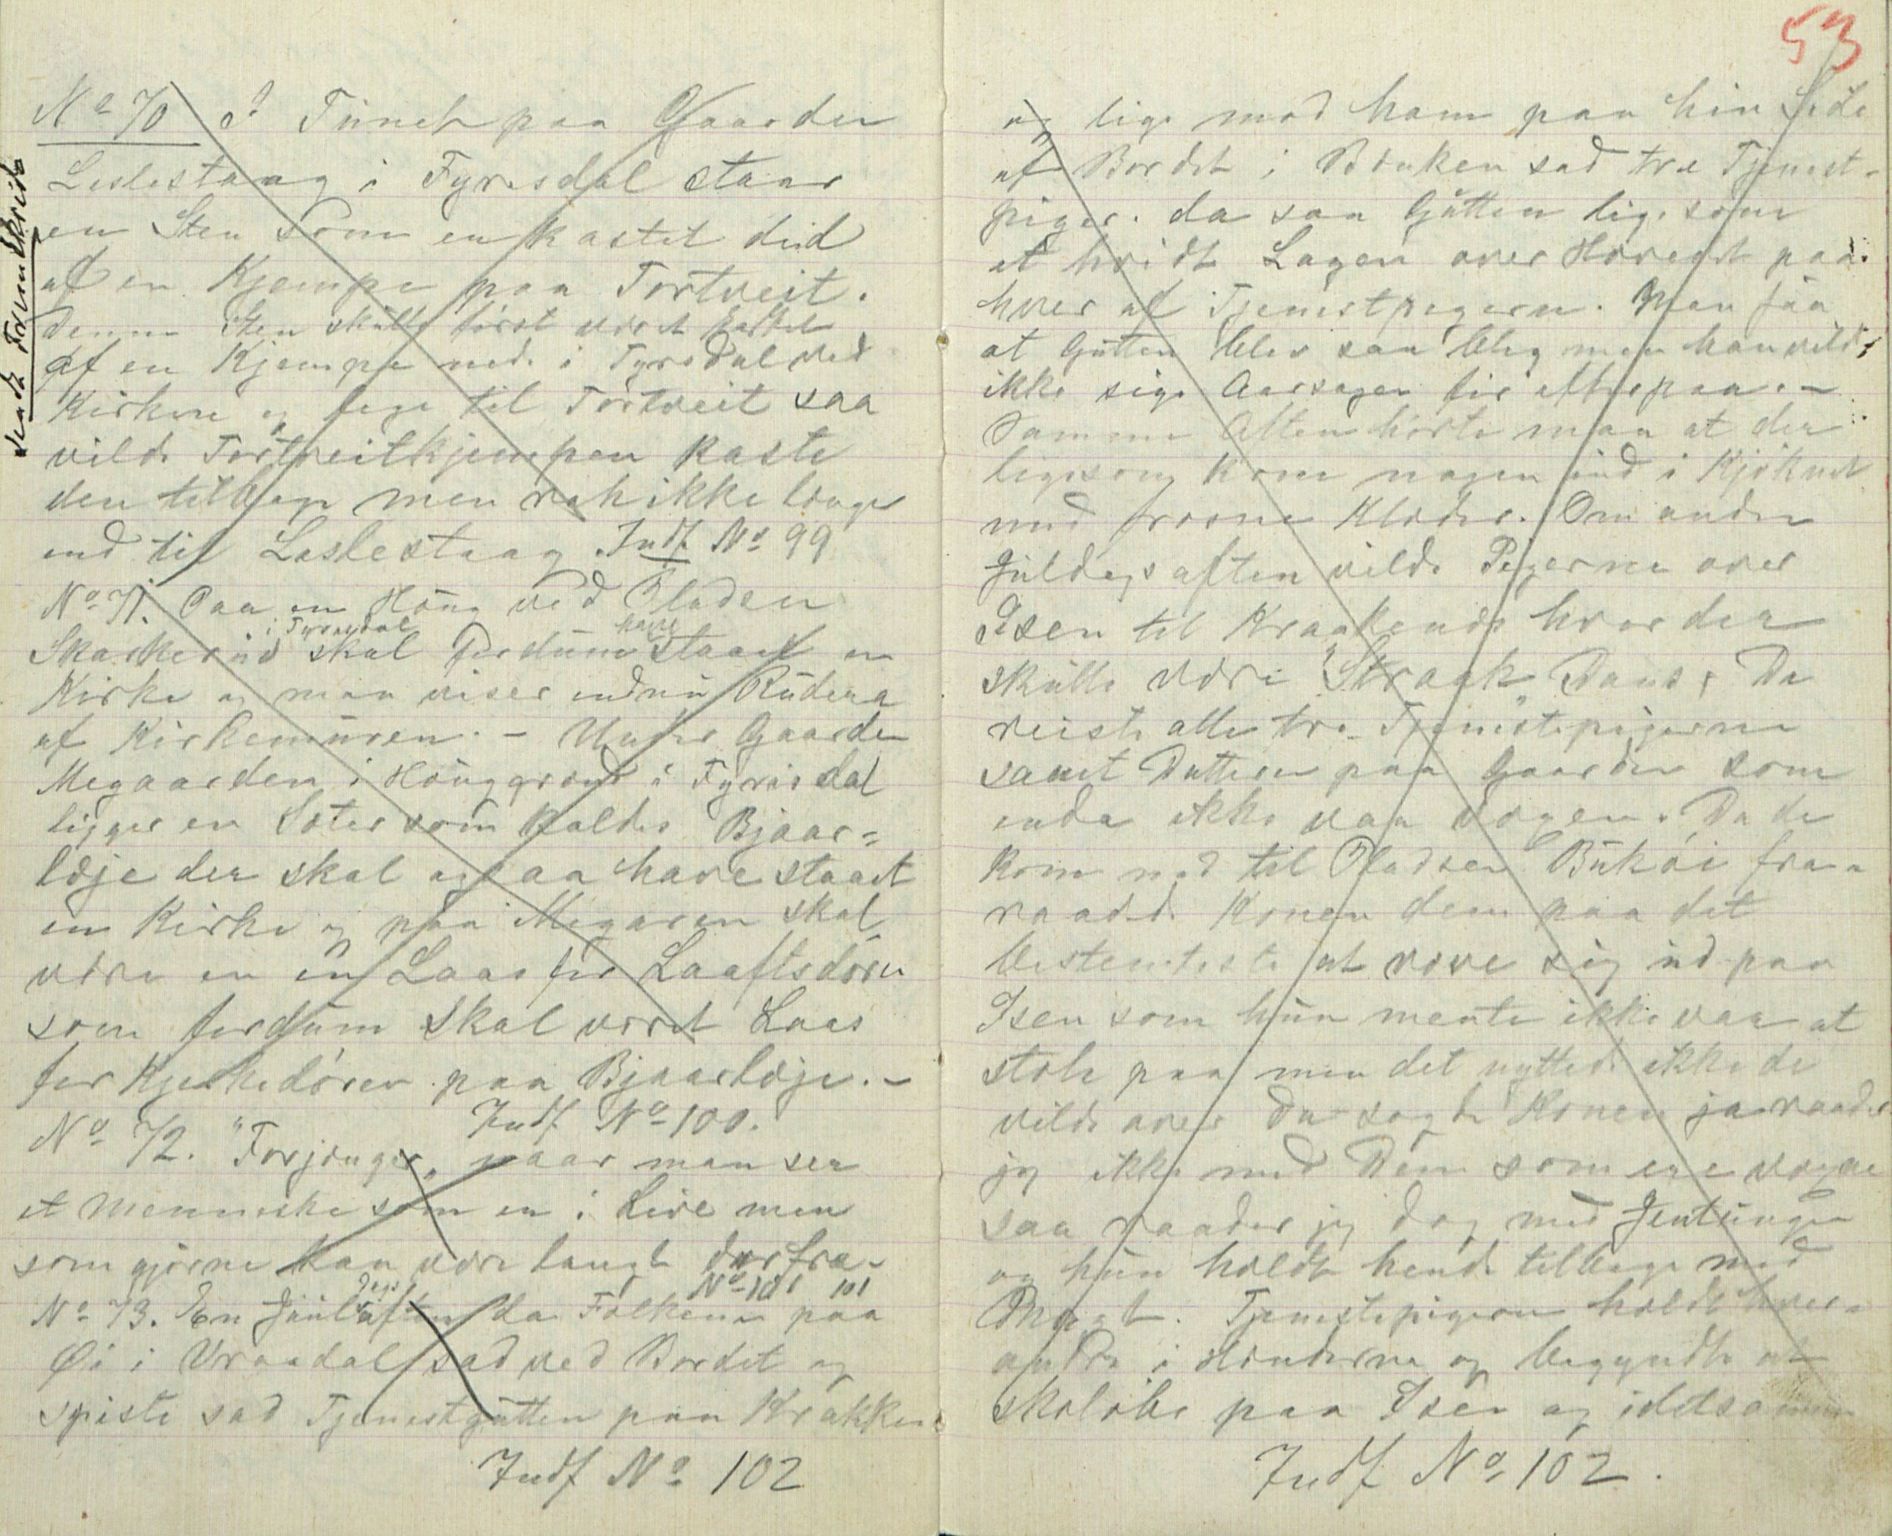 No 70 I Tunet paa Gaarden
Leslestaag i Fyrisdal staar
en Sten som er kastet did
af en Kjempe paa Tortveit.
Denne Sten skulle først været kastet
af en Kjempe nede i Fyrisdal ved
Kirken og fløge til Tortveit saa
vilde Tortveitkjempen kaste
den tilbage men rak ikke længer
end til Leslestaag. Indf No 99
No 71. Paa en Houg ved Pladsen
i Fyrisdal have
Skaakerud skal fordum staaet en
Kirke og man viser endnu Rudera
af Kirkemuren. – Under Gaarden
Megaarden i Hauggrænd i Fyrisdal
ligger en Sæter som kaldes Bjaar=
læje der skal ogsaa have staaet
en Kirke og paa Megaren skal
være en en Laas for Laaftsdøren
som fordum skal været Laas
for Kjerkedøren paa Bjaarlæje. –
Indf No 100.
No 72. "Forjænger" naar man ser
et Menneske som er i Live men
som gjerne kan være langt derfra.
No 101 101
No 73. En Juldagsaften da Folkene paa
Øi i Vraadal sad ved Bordet og
spiste sad Tjenestgutten paa Krakken
Indf No 102
sendt Fremskridt
53
og lige mod ham paa hin Side
af Bordet i Bænken sad tre Tjenest-
piger. da saa Gutten lige som
et hvidt Lagen over Hovedet paa
hver af Tjenestpigern. Man saa
at Gutten blev saa bleg men han vilde
ikke sige Aarsagen før efterpaa. –
Samme Aften hørte man at der
ligesom kom nogen ind i Kjøkenet
med frosne Klæder. Om anden
Juldags aften vilde Pigerne over
Isen til Kraakenes hvor der
skulle være "Straak" Dans. Da
reiste alle tre Tjenestepigerne
samt Datteren paa Gaarden som
enda ikke var voxen. Da de
kom ned til Pladsen Bukøi fra-
raadede Konen dem paa det
bestemteste at vove sig ud paa
Isen som hun mente ikke var at
stole paa men det nyttede ikke de
vilde over Da sagde Konen ja raader
jeg ikke med Dem som ere voxne
saa raader jeg dog med Jentungen
og hun holdt hende tilbage med
Magt. Tjenestepigerne holdt hver-
andre i Hænderne og begyndte at
skoløbe paa Isen og idetsamme
Indf No 102.